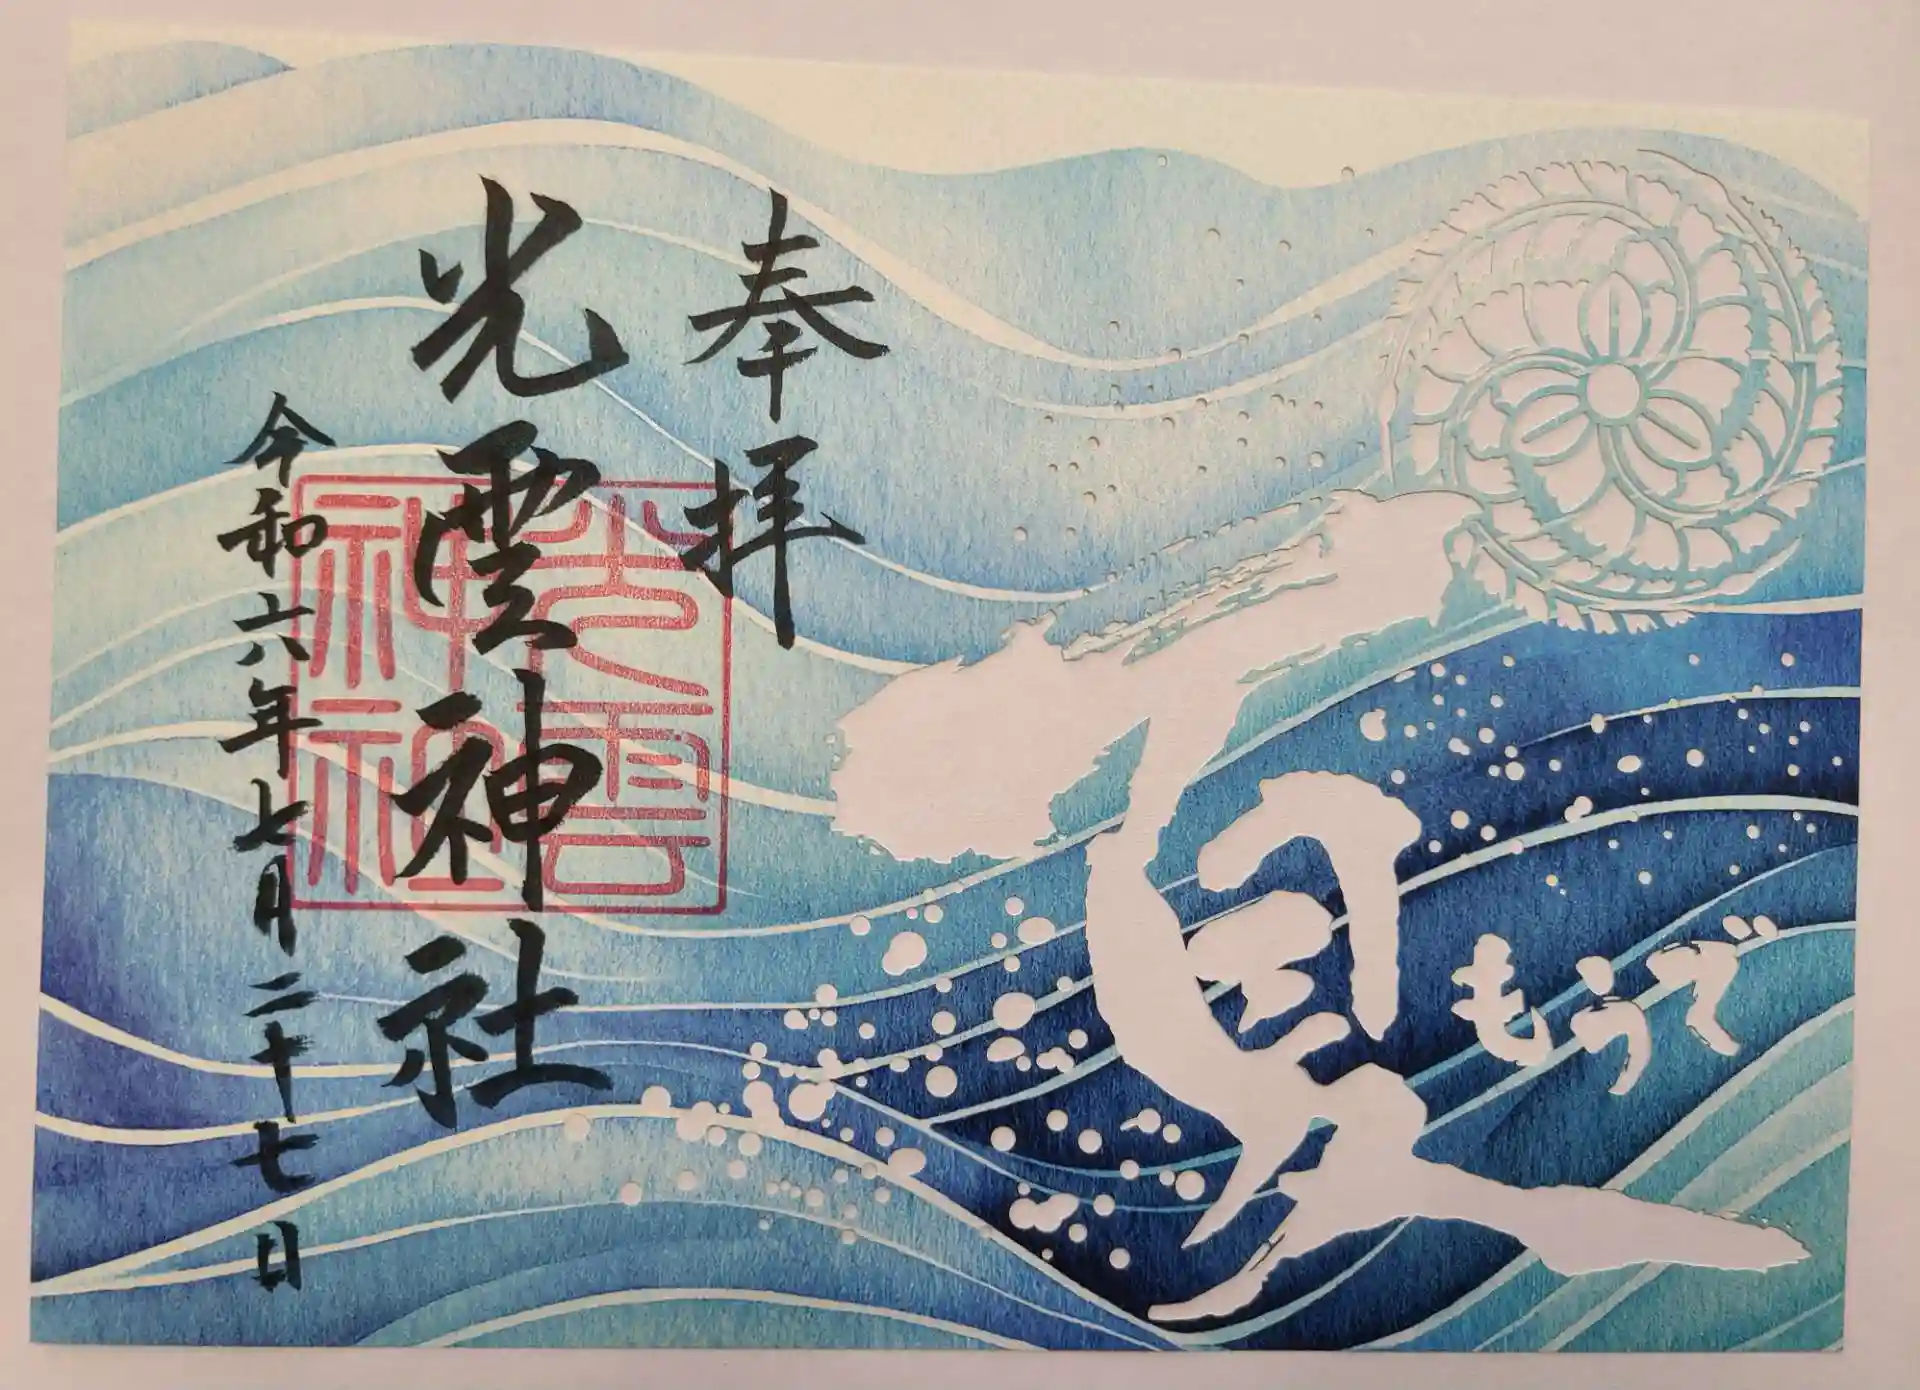 夏
もうで
奉拝
光雲神社
光雲神社
令和六年七月二十七日